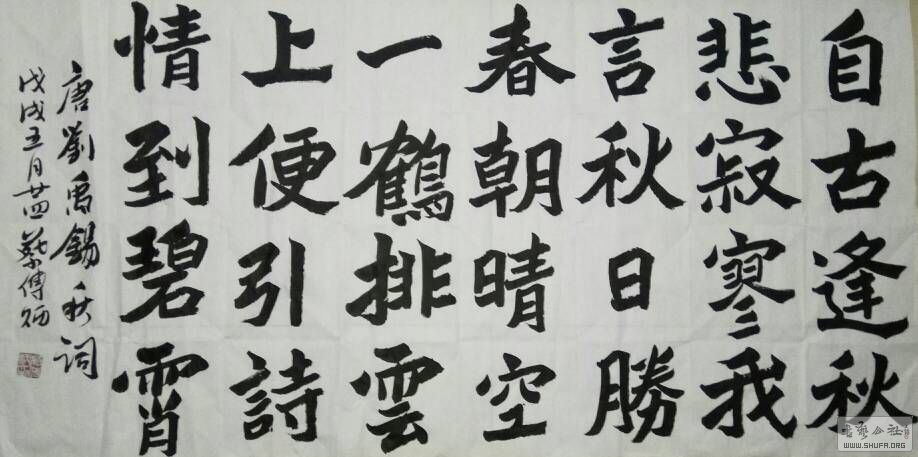 自古逢秋
悲寂寥我
言秋日勝
春朝晴空
一鶴排雲
上便引詩
情到碧霄
唐劉禹錫秋詞
戊戌五月廿四蔡傳炳
WWW.SHUFA.ORG